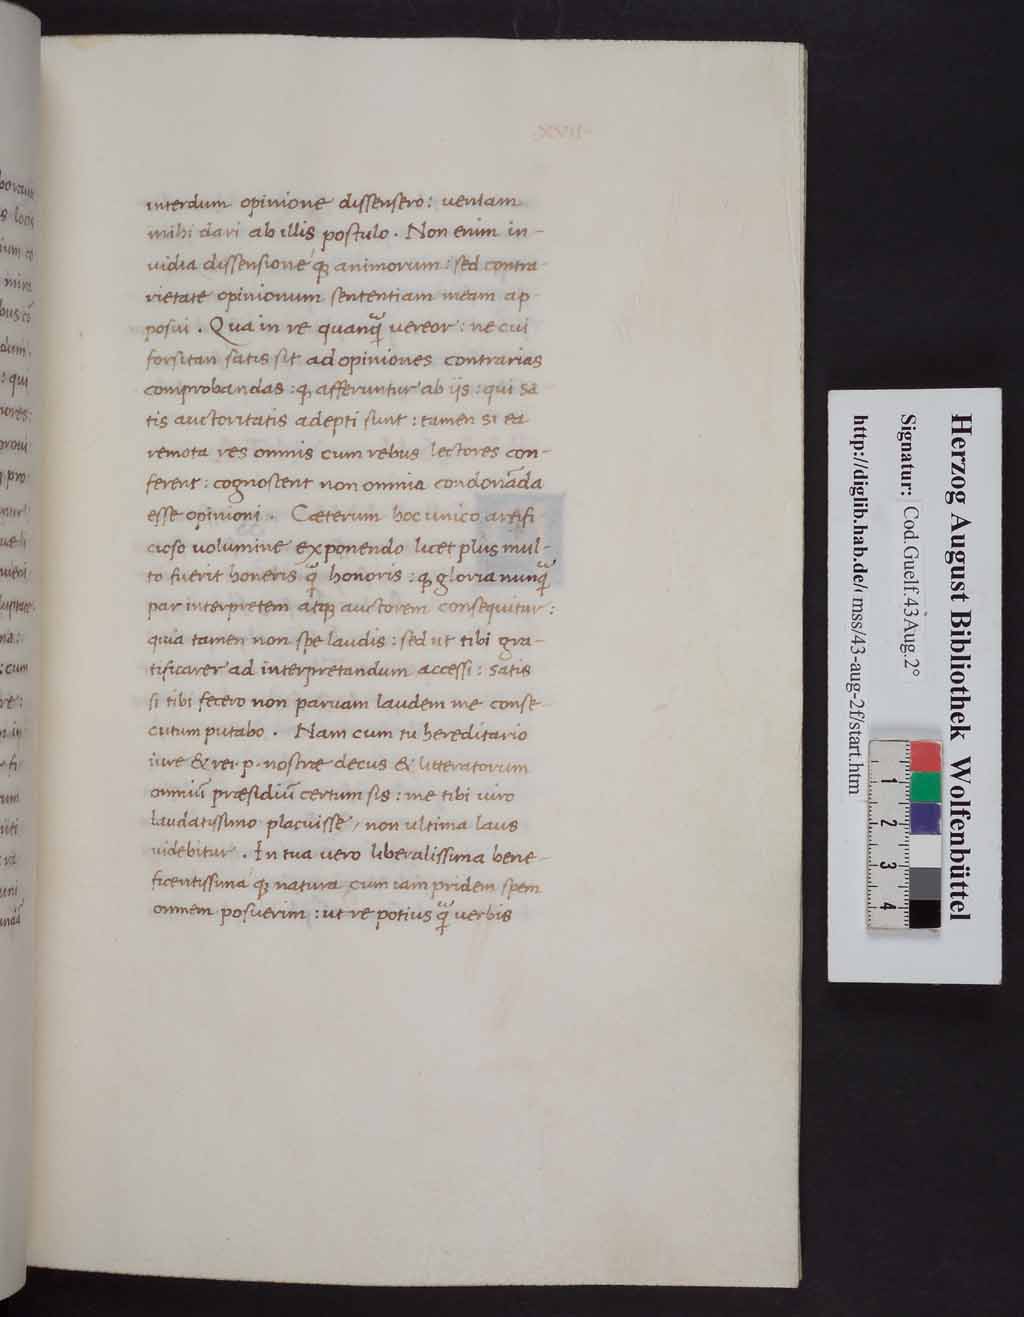 interdum opinione dissensero: ueniam
mihi dari ab illis postulo. Non enim in-
uidia dissensione q; animorum: sed contra-
rietate opinionum sententiam meam ap-
posui. Qua in re quanq̃ uereor: ne cui
forsitan satis sit ad opiniones contrarias
comprobandas: q; afferuntur ab ijs: qui sa
tis auctoritatis adepti sunt: tamen si ea
remota res omnis cum rebus lectores con-
ferent: cognoscent non omnia condonãda
esse opinioni. Cæterum hoc unico artifi
cioso uolumine exponendo licet plus mul-
to fuerit honeris q̃ honoris: q; gloria nunq̃
par interpretem atq; auctorem consequitur:
quia tamen non spe laudis: sed ut tibi gra-
tificarer ad interpretandum accessi: satis
si tibi fecero non paruam laudem me conse-
cutum putabo. Nam cum tu hereditario
iure & rei. p. nostræ decus & litteratorum
omniũ præsidiũ certum sis: me tibi uiro
laudatissimo placuisse, non ultima laus
uidebitur. In tua uero liberalissima bene-
ficentissima q; natura cum iam pridem spem
omnem posuerim: ut re potius q̃ uerbis
Herzog August Bibliothek Wolfenbüttel
Signatur: Cod.Guelf.43 Aug.2°
http://diglib.hab.de/ mss/43-aug-2f/start.htm
1 2 3 4